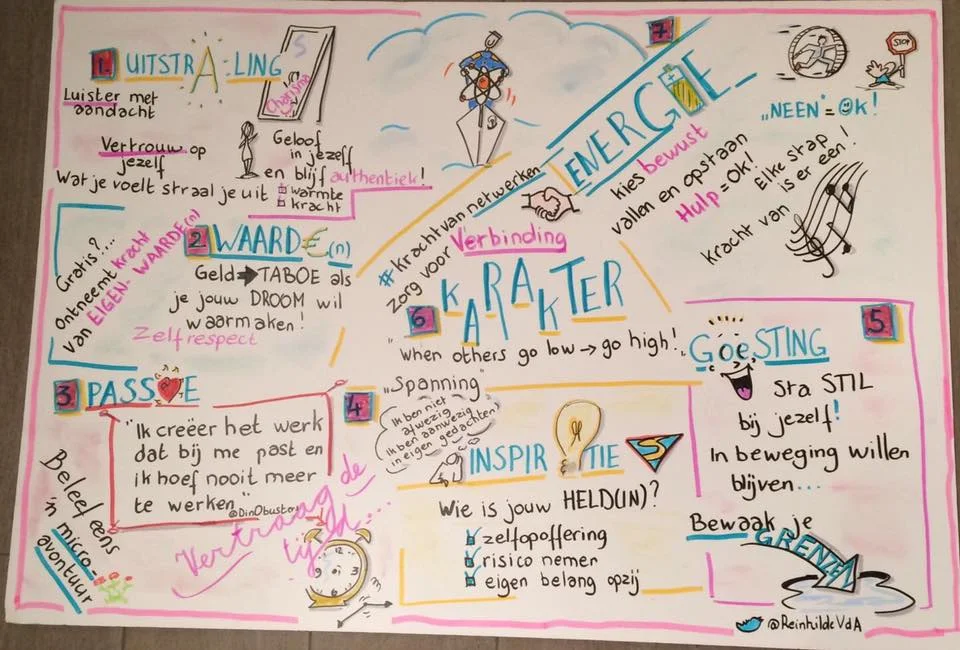 1. UITSTRALING
Luister met
aandacht
Charisma
Vertrouw op
jezelf
Geloof
in jezelf
en blijf authentiek!
Wat je voelt straal je uit
warmte
kracht
Gratis?...
Ontneemt kracht
van EIGEN-WAARDE(n)
2. WAARD€(n)
Geld → TABOE als
je jouw DROOM wil
waarmaken!
Zelfrespect
3. PASSIE
"Ik creëer het werk
dat bij me past en
ik hoef nooit meer
te werken"
Beleef eens
'n micro-
avontuur
Vertraag de
tijd...
12
3
6
9
4.
"Spanning"
Ik ben niet
afwezig
Ik ben aanwezig
in eigen gedachten
INSPIRATIE
S
Wie is jouw HELD(IN)?
zelfopoffering
risico nemer
eigen belang opzij
5.
GOESTING
Sta STIL
bij jezelf!
In beweging willen
blijven...
Bewaak je
GRENZEN
@ReinhildeVdA
6. KARAKTER
"When others go low → go high!"
#Kracht van netwerken
zorg voor Verbinding
7.
ENERGIE
kies bewust
vallen en opstaan
Hulp = Ok!
Elke stap
is er een!
Kracht van
STOP
"NEEN" = Ok!